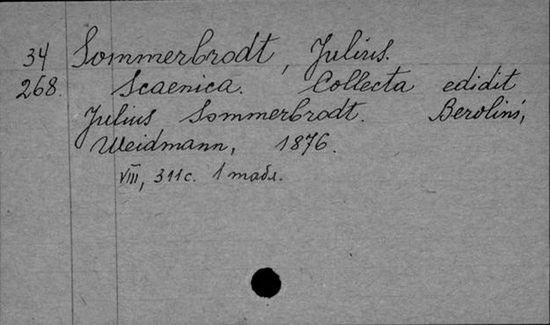 34 Sommerbrodt, Julius.
268. Scaenica. Collecta edidit
Julius Sommerbrodt. Berolini,
Weidmann, 1876.
VIII, 311 с. 1 табл.